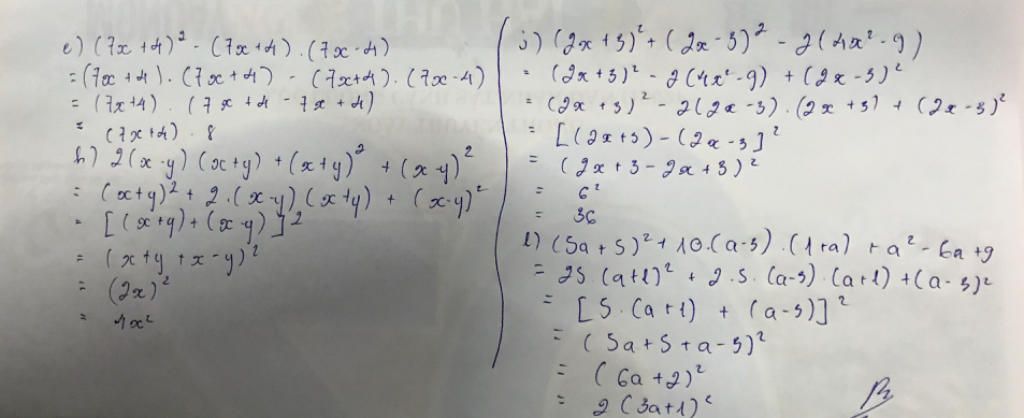 e) (7x+4)² - (7x+4).(7x-4)
= (7x+4).(7x+4) - (7x+4).(7x-4)
= (7x+4).(7x+4-7x+4)
= (7x+4).8
h) 2(x-y)(x+y)+(x+y)²+(x-y)²
= (x+y)²+2.(x-y)(x+y)+(x-y)²
= [(x+y)+(x-y)]²
= (x+y+x-y)²
= (2x)²
= 4x²
j) (2x+3)²+(2x-3)²-2(4x²-9)
= (2x+3)²-2(4x²-9)+(2x-3)²
= (2x+3)²-2(2x-3).(2x+3)+(2x-3)²
= [(2x+3)-(2x-3]²
= (2x+3-2x+3)²
= 6²
= 36
l) (5a+5)²+10.(a-3).(1+a)+a²-6a+9
= 25.(a+1)²+2.5.(a-3).(a+1)+(a-3)²
= [5.(a+1)+(a-3)]²
= (5a+5+a-3)²
= (6a+2)²
= 2(3a+1)²